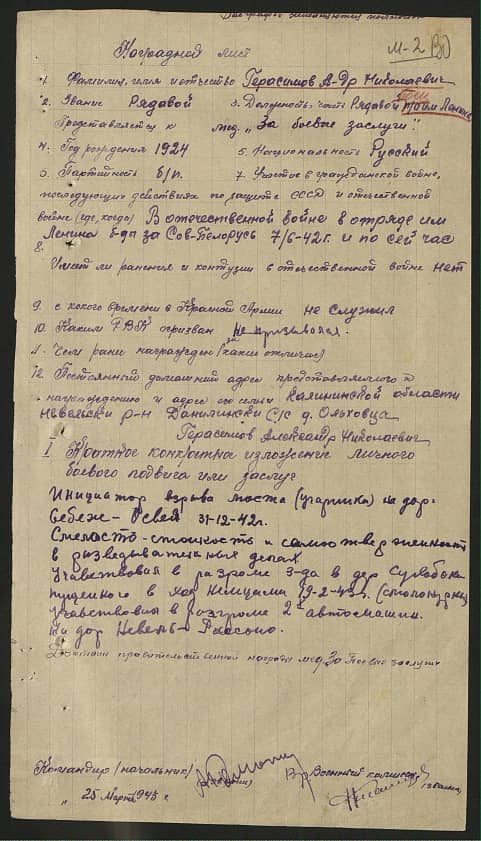 М-2
Наградной лист
1. Фамилия, имя и отчество Герасимов А-др Николаевич
2. Звание Рядовой 3. Должность, часть Рядовой Ленина
Представляется к мед. „За боевые заслуги"
4. Год рождения 1924 5. Национальность Русский
6. Партийность б/п. 7. Участие в гражданской войне,
последующих действиях по защите СССР и отечественной
войне (где, когда) В отечественной войне в отряде им
Ленина б-ды за Сов-Белорусь 7/6-42г. и по сей час
8.
Имеет ли ранения и контузии в отечественной войне нет
9. с какого времени в Красной Армии не служил
10. Каким РВК призван Не призывался.
11. Чем ранее награжден (какие отличия)
12. Постоянный домашний адрес представляемого к
награждению и адрес его семьи Калининской области
Невельски р-н Данилински С/с д. Ольховца
Герасимов Александр Николаевич
I Краткое конкретное изложение личного
боевого подвига или заслуг
Инициатор взрыва моста на дор.
Себеж- Освея 31-12-42г.
Смелость-стойкость и самоотверженность
в разведывательных делах
Участвовал в разгроме з-да в дер
пущенного в ход немцами 19-2-43г.
Участвовал в разгроме 2х автомашин.
на дор Невель-Россоно.
Достоин правительственной награды мед За боевые заслуги
Командир (начальник) Военный комиссар
„ 25 Марта 1943 г